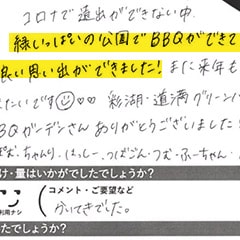 コロナで遠出ができない中、
緑いっぱいの公園でBBQができて
良い思い出ができました！また来年も
たいです♡♡ 彩湖・道満グリーンパ
BQガーデンさんありがとうございました！
ちゃんり・はっしー・つばごん・つむ・ふーちゃん・
け・量はいかがでしたでしょうか？
コメント・ご要望など
利用ナシ
かいてきでした。
たでしょうか？